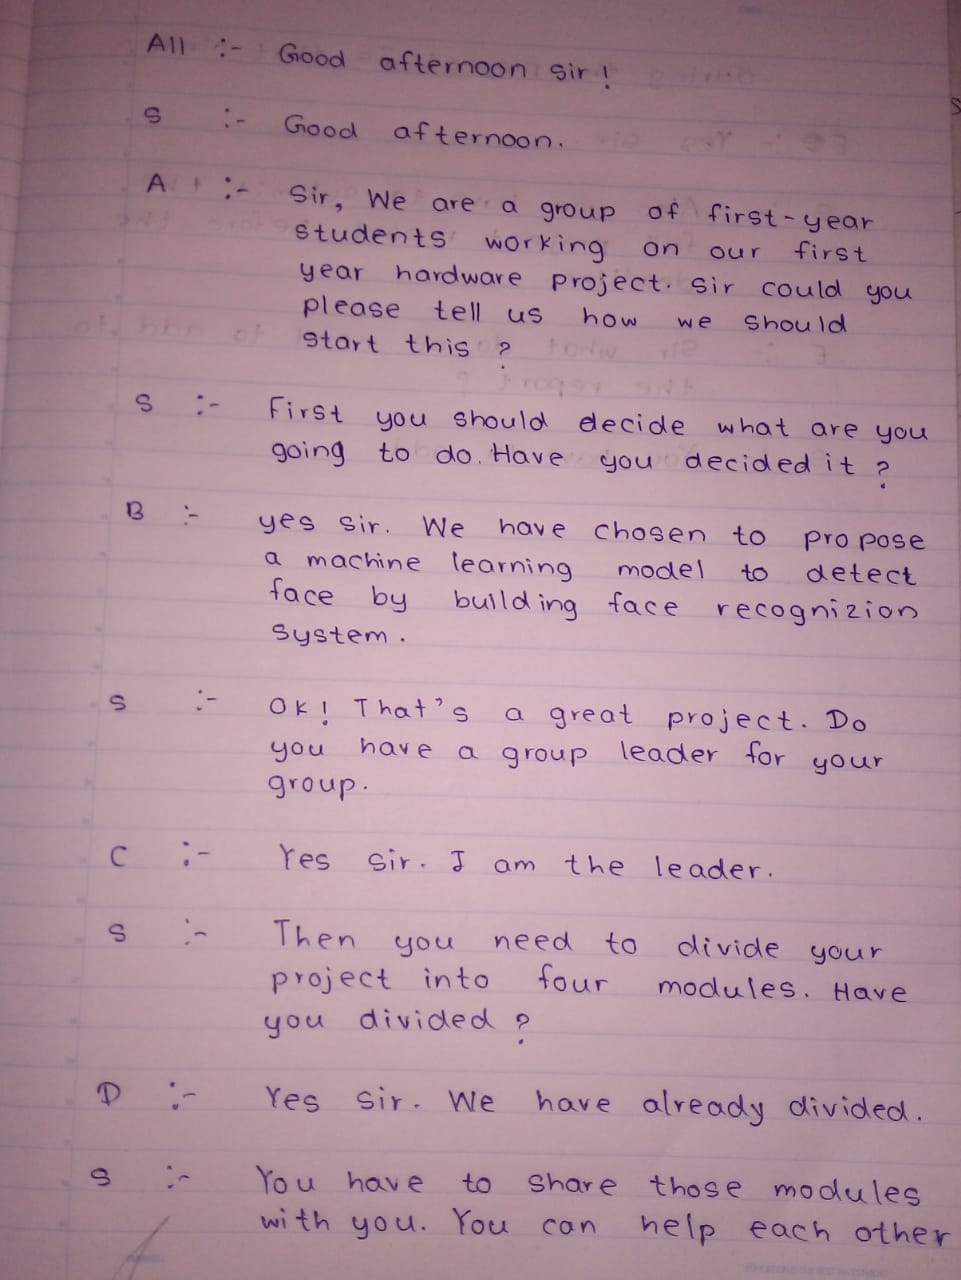 All :- Good afternoon sir!
S :- Good afternoon.
A :- Sir, We are a group of first-year
students working on our first
year hardware project. Sir could you
please tell us how we should
start this ?
S :- First you should decide what are you
going to do. Have you decided it ?
B :- yes sir. We have chosen to propose
a machine learning model to detect
face by building face recognizion
system.
S :- OK! That's a great project. Do
you have a group leader for your
group.
C :- Yes sir. I am the leader.
S :- Then you need to divide your
project into four modules. Have
you divided ?
D :- Yes sir. We have already divided.
S :- You have to share those modules
with you. You can help each other